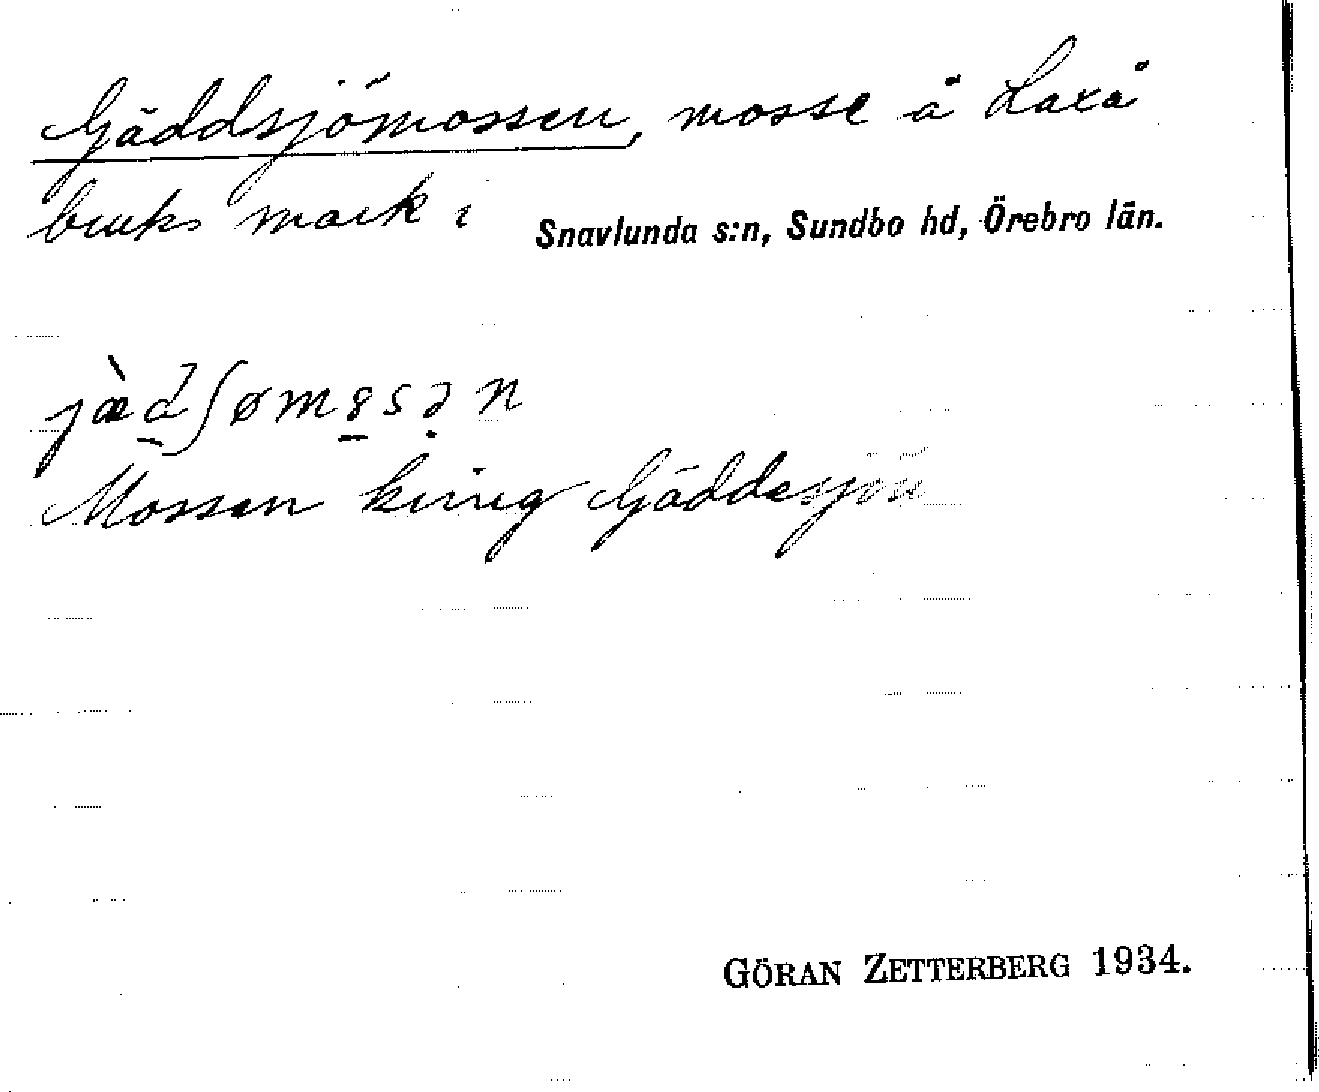 Gäddsjömossen, mosse å Laxå
bruks mark i Snavlunda s:n, Sundbo hd, Örebro län.
jæ̀dʃømɞsən
Mossen kring Gäddesjön
GÖRAN ZETTERBERG 1934.